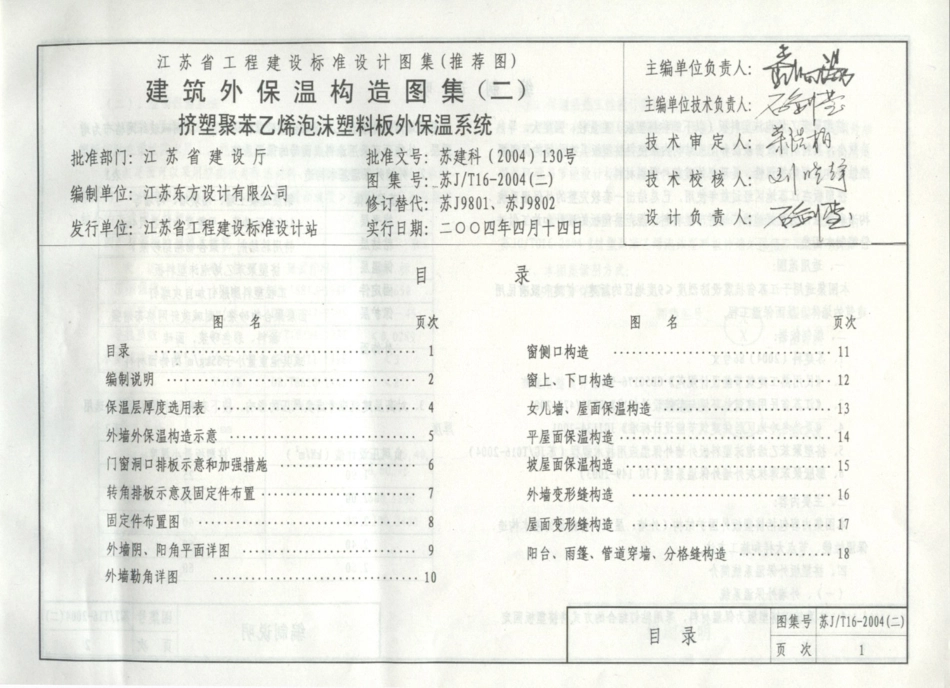 江苏省工程建设标准设计图集(推荐图)
建筑外保温构造图集(二)
挤塑聚苯乙烯泡沫塑料板外保温系统
批准部门：江苏省建设厅
编制单位：江苏东方设计有限公司
发行单位：江苏省工程建设标准设计站
批准文号：苏建科（2004）130号
图集号：苏J/T16-2004(二)
修订替代：苏J9801、苏J9802
实行日期：二〇〇四年四月十四日
主编单位负责人：
主编单位技术负责人：
技术审定人：
技术校核人：
设计负责人：
目 录
图 名 页次
目录 1
编制说明 2
保温层厚度选用表 4
外墙外保温构造示意 5
门窗洞口排板示意和加强措施 6
转角排板示意及固定件布置 7
固定件布置图 8
外墙阴、阳角平面详图 9
外墙勒角详图 10
图 名 页次
窗侧口构造 11
窗上、下口构造 12
女儿墙、屋面保温构造 13
平屋面保温构造 14
坡屋面保温构造 15
外墙变形缝构造 16
屋面变形缝构造 17
阳台、雨蓬、管道穿墙、分格缝构造 18
目 录
图集号 苏J/T16-2004(二)
页次 1